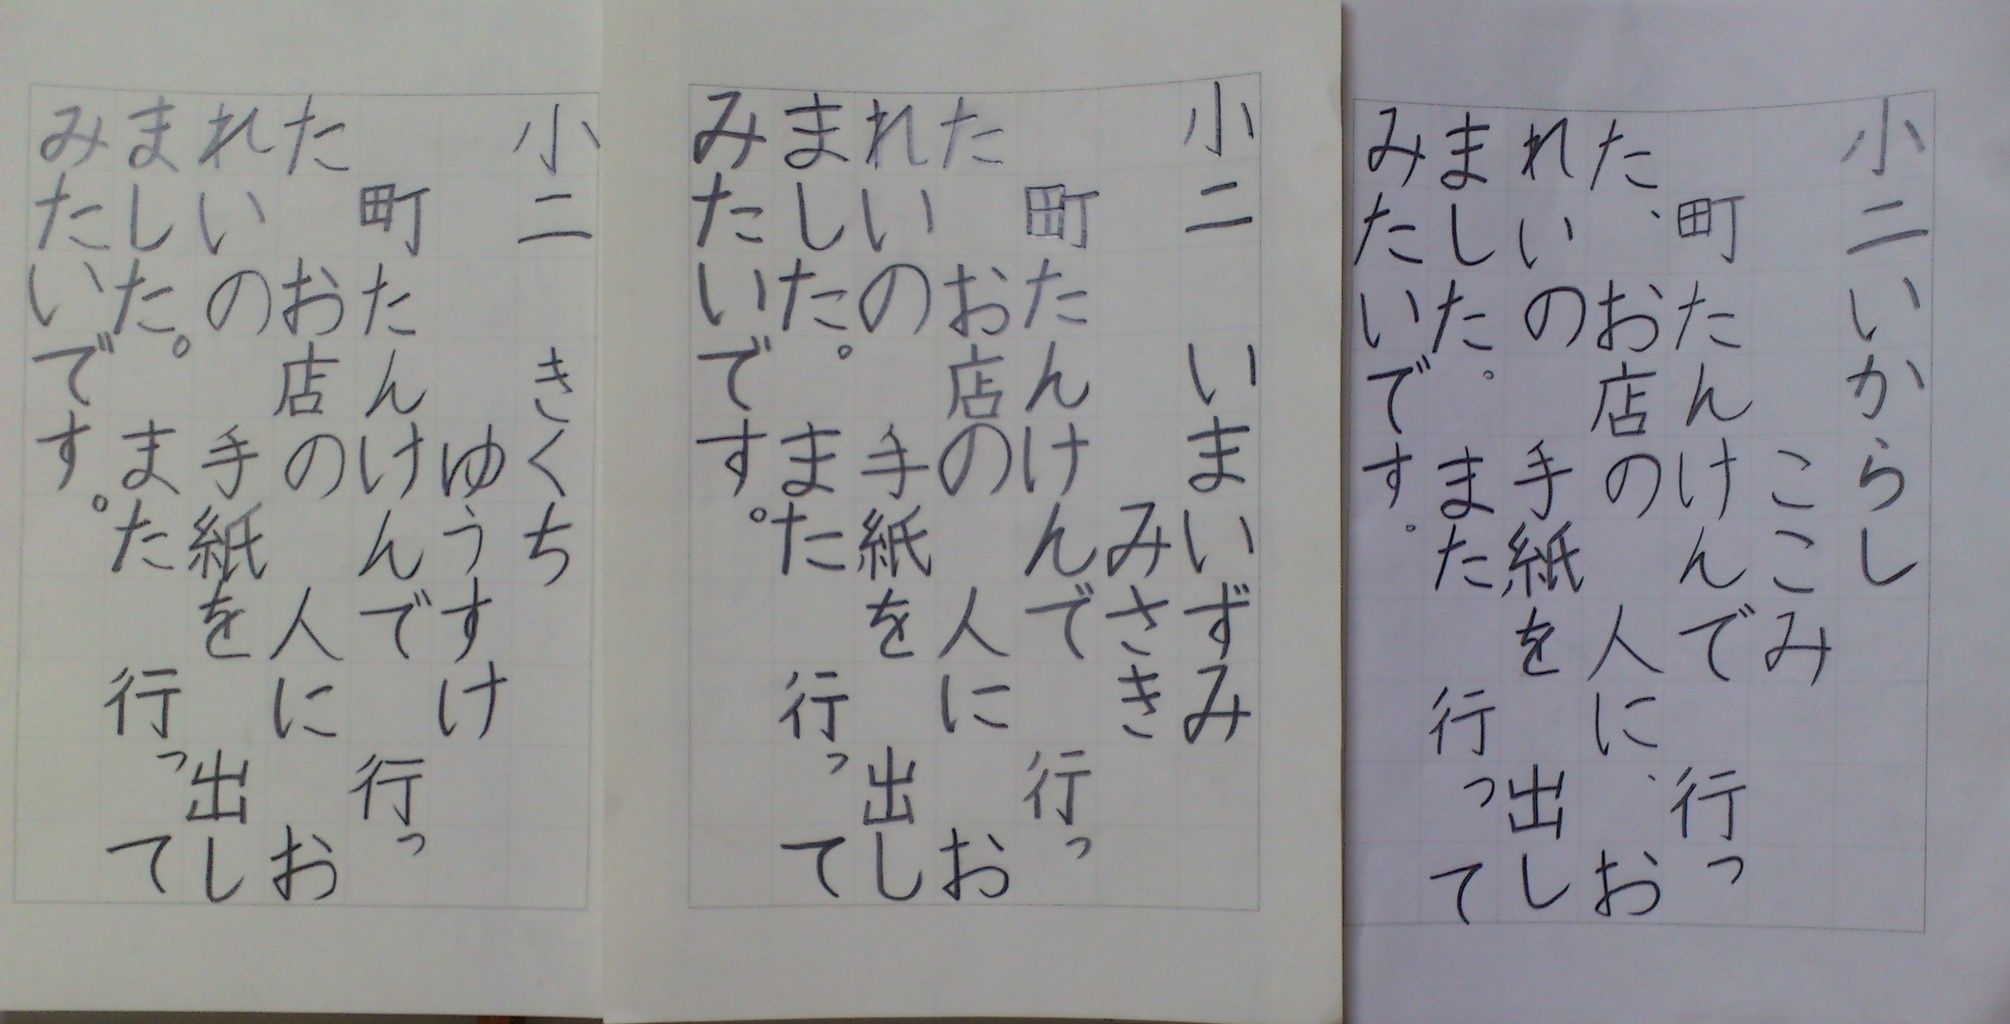 小二いからし
ここみ
町たんけんで 行っ
た、お店の 人に、お
れいの 手紙を 出し
ました。 また 行って
みたいです。
小二 いまいずみ
みさき
町たんけんで 行っ
た お店の 人に お
れいの 手紙を 出し
ました。 また 行って
みたいです。
小二 きくち
ゆうすけ
町たんけんで 行っ
た お店の 人に お
れいの 手紙を 出し
ました。 また 行って
みたいです。